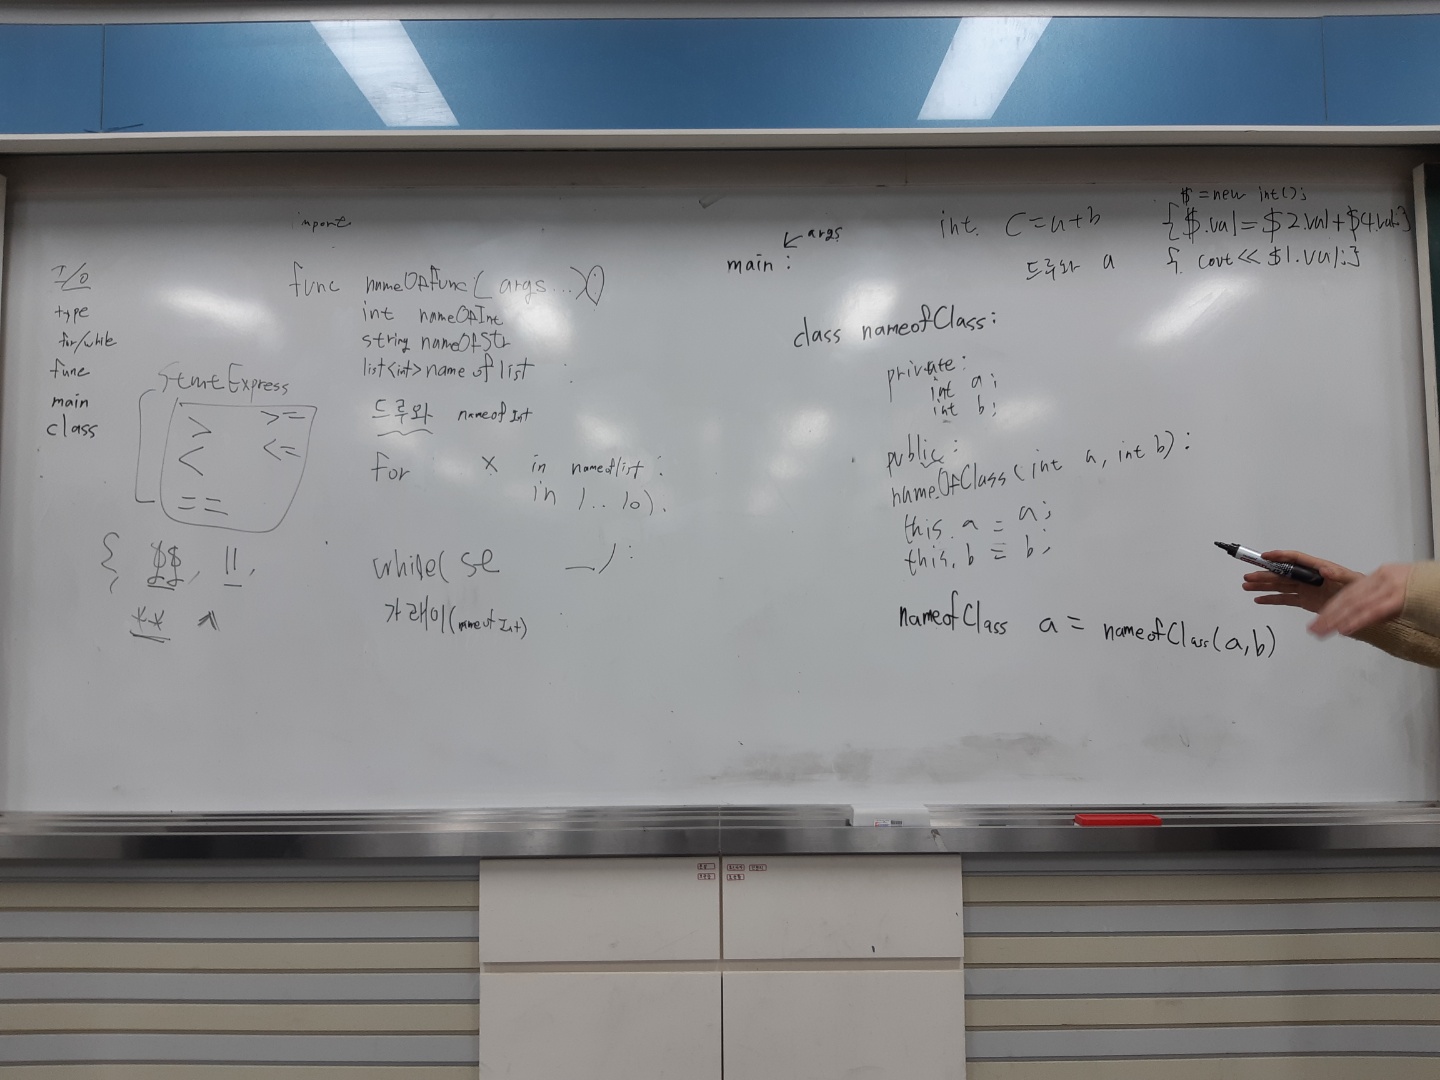 import
I/O
type
for/while
func
main
class
Stmt Express
> >=
< <=
==
{ $$, ||,
** ^
func nameOfFunc( args...):
int nameOfInt
string nameOfStr
list<int> name of list
드루와 nameofInt
for x in nameoflist:
in 1..10).
while( se ):
가래이(nameofInt)
args
main :
int C=a+b
드루와 a
$ = new int();
{$.val = $2.val + $4.val}
{ cout << $1.val;}
class nameofClass:
private:
int a;
int b;
public:
nameOfClass(int a, int b):
this.a = a;
this.b = b;
nameofClass a = nameofClass(a,b)